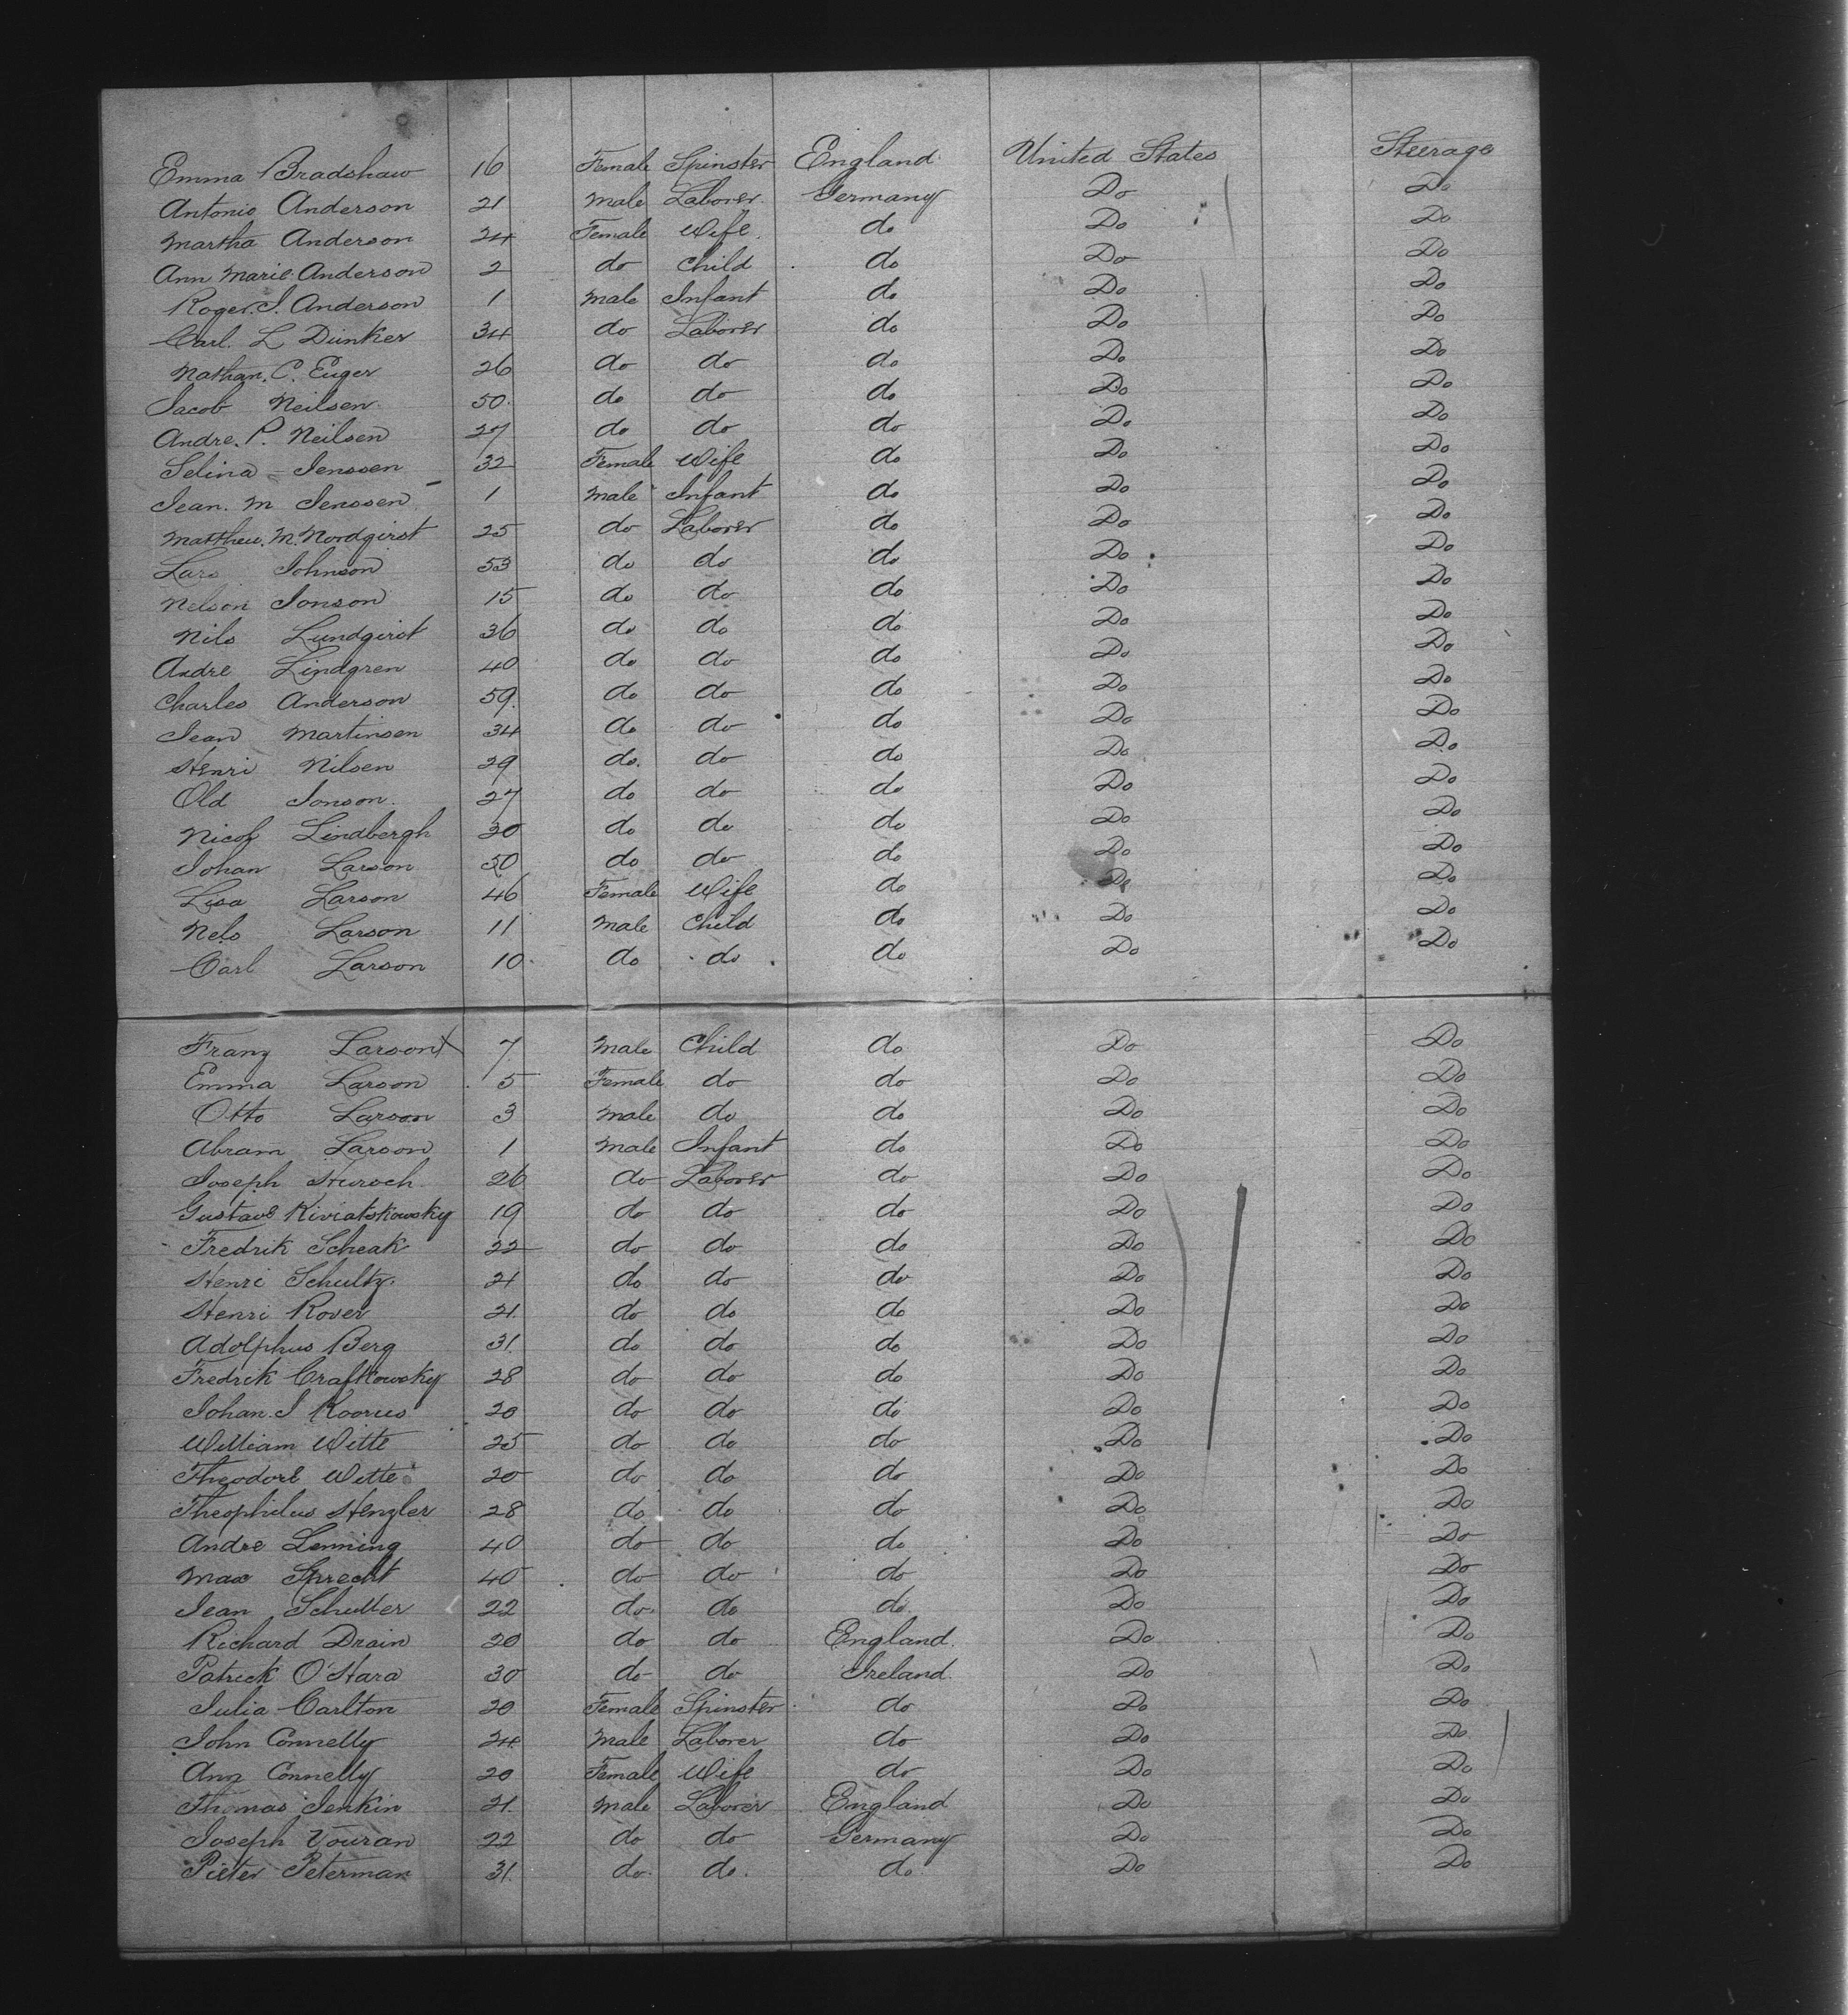 Emma Bradshaw 16 Female Spinster England United States Steerage
Antonio Anderson 21 Male Laborer Germany Do Do
Martha Anderson 24 Female Wife do Do Do
Ann Marie Anderson 2 do Child do Do Do
Roger. J. Anderson 1 Male Infant do Do Do
Carl. L Dunker 34 do Laborer do Do Do
Nathan. C. Euger 26 do do do Do Do
Jacob Neilsen 50 do do do Do Do
Andre. P. Neilsen 27 do do do Do Do
Selina Jenssen 32 Female Wife do Do Do
Jean. M Jenssen 1 Male Infant do Do Do
Matthew. M. Nordqirst 25 do Laborer do Do Do
Lars Johnson 53 do do do Do Do
Nelson Jonson 15 do do do Do Do
Nils Lundqirst 36 do do do Do Do
Andre Lindgren 40 do do do Do Do
Charles Anderson 59 do do do Do Do
Jean Martinsen 34 do do do Do Do
Henri Nilsen 29 do do do Do Do
Old Jonson 27 do do do Do Do
Lindbergh 30 do do do Do Do
Johan Larson 50 do do do Do Do
Lisa Larson 46 Female Wife do Do Do
Nels Larson 11 Male Child do Do Do
Carl Larson 10 do do do Do Do
Franz Larson 7 Male Child do Do Do
Emma Larson 5 Female do do Do Do
Otto Larson 3 Male do do Do Do
Abram Larson 1 Male Infant do Do Do
Joseph 26 do Laborer do Do Do
Gustave Kiviatskowsky 19 do do do Do Do
Fredrik Scheak 22 do do do Do Do
Henri Schultz 21 do do do Do Do
Henri Rover 21 do do do Do Do
Adolphus Berg 31 do do do Do Do
Fredrik Crafkowsky 28 do do do Do Do
Johan. J Koorus 20 do do do Do Do
William Witte 25 do do do Do Do
Theodore Witte 20 do do do Do Do
Theophilus Henzler 28 do do do Do Do
Andre Lenning 40 do do do Do Do
Max Sprecht 40 do do do Do Do
Jean Schutter 22 do do do Do Do
Richard Drain 20 do do England Do Do
Patrick O'Hara 30 do do Ireland Do Do
Julia Carlton 20 Female Spinster do Do Do
John Connelly 24 Male Laborer do Do Do
Ann Connelly 20 Female Wife do Do Do
Thomas Jenkin 21 Male Laborer England Do Do
Joseph Vouran 22 do do Germany Do Do
Pieter Peterman 31 do do do Do Do